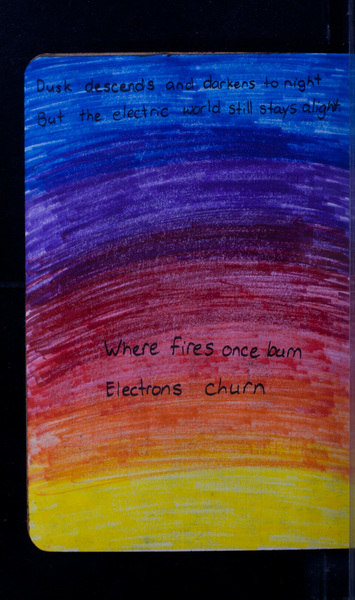 Dusk descends and darkens to night
But the electric world still stays alight
Where fires once burn
Electrons churn